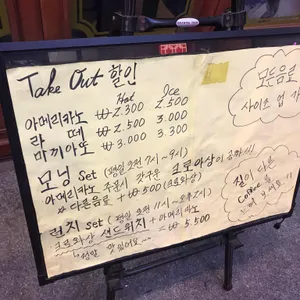 Take Out 할인
Hot Ice
아메리카노 ₩2.300 2.500
라떼 ₩2.500 3.000
마끼아또 ₩3.000 3.300
모닝 set (평일 오전 7시~9시)
아메리카노 주문시 갓구운 크로아상이 공짜!
다른음료 + ₩500 (크로와상)
런치 set (평일 오전 11시~오후2시)
크로와상 샌드위치 + 아메리카노
정말 맛있어요 ₩5.500
모든음료
사이즈 업
질이 다른
Coffee를